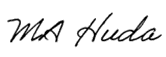 MA Huda